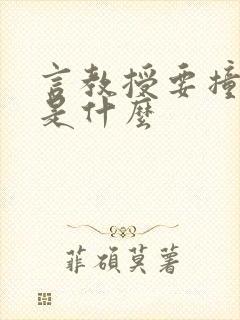 言教授要撞
是什麼
菲碩莫著